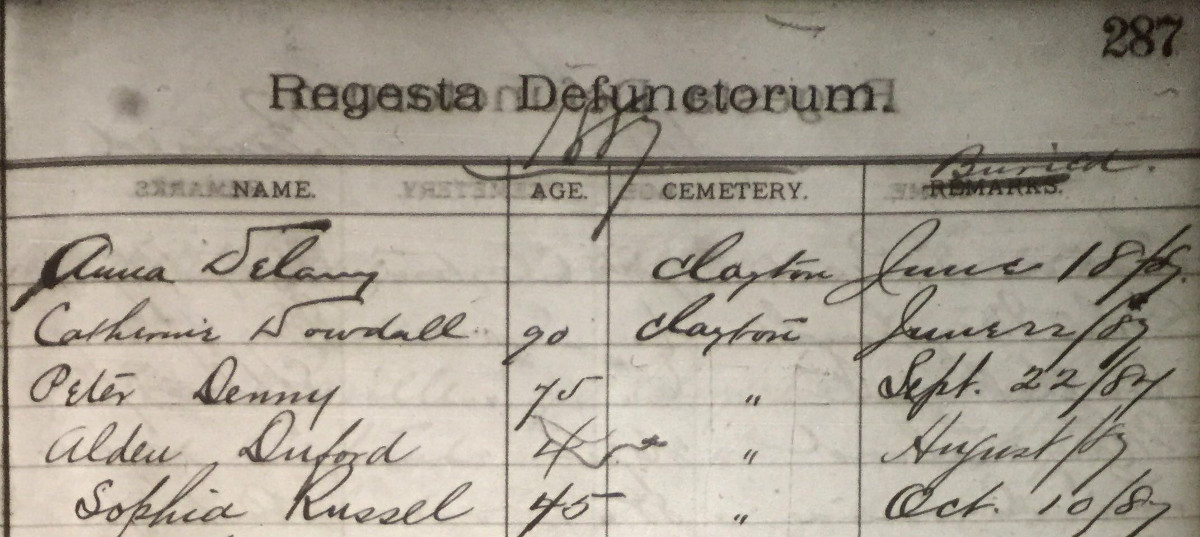 287
Regesta Defunctorum.
1887
Buried.
NAME. AGE. CEMETERY. REMARKS.
Anna Delany Clayton June 18/87.
Catherine Dowdall 90 Clayton June 22/87
Peter Denny 75 " Sept. 22/87
Alden Duford 4 " August/87
Sophia Russel 45 " Oct. 10/87